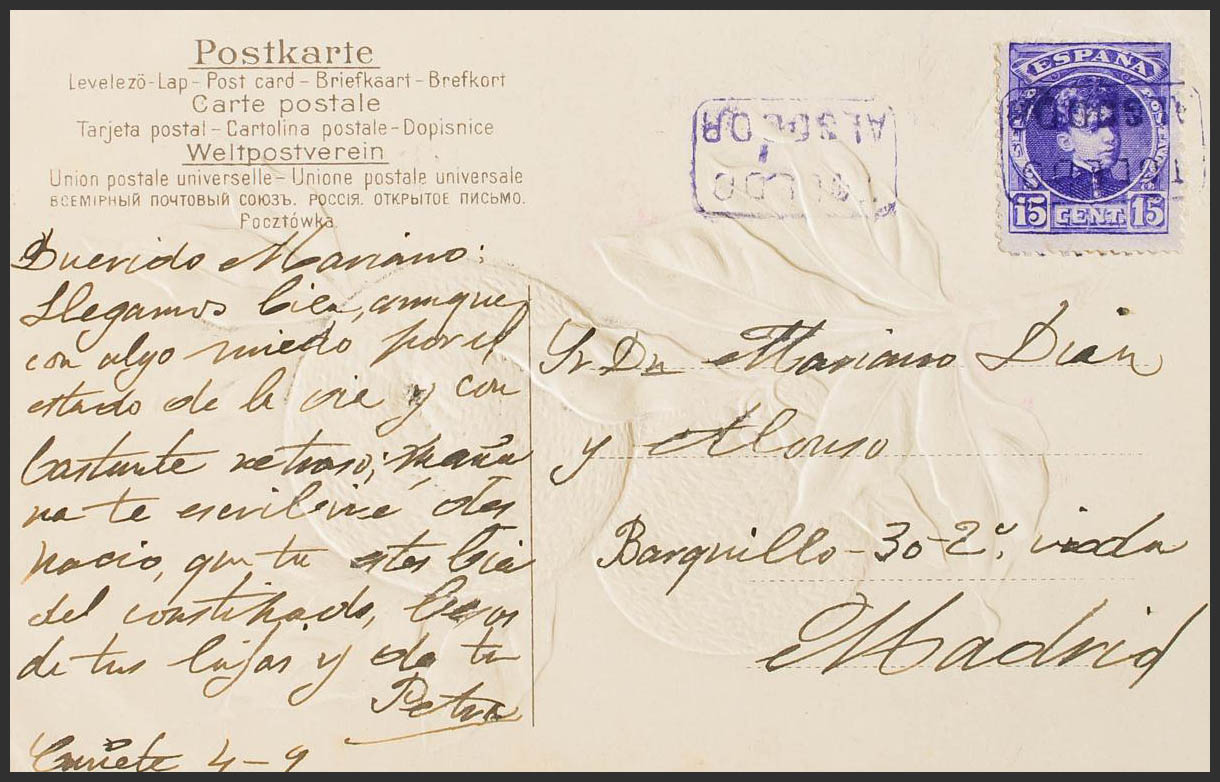 Postkarte
Levelezö-Lap - Post card - Briefkaart - Brefkort
Carte postale
Tarjeta postal - Cartolina postale - Dopisnice
Weltpostverein
Union postale universelle - Unione postale universale
ВСЕМІРНЫЙ ПОЧТОВЫЙ СОЮЗЪ. РОССІЯ. ОТКРЫТОЕ ПИСЬМО.
Pocztówka
ESPAÑA
15 CENT. 15
Querido Mariano:
Llegamos bien, aunque
con algo miedo por el
estado de la via y con
bastante retraso; maña
na te escribiré des
pacio, que tu estes bien
del constipado, besos
de tus hijas y de tu
Petra
Cañete 4-9
Sr Dn Mariano Diaz
y Alonso
Barquillo-30-2º.
Madrid